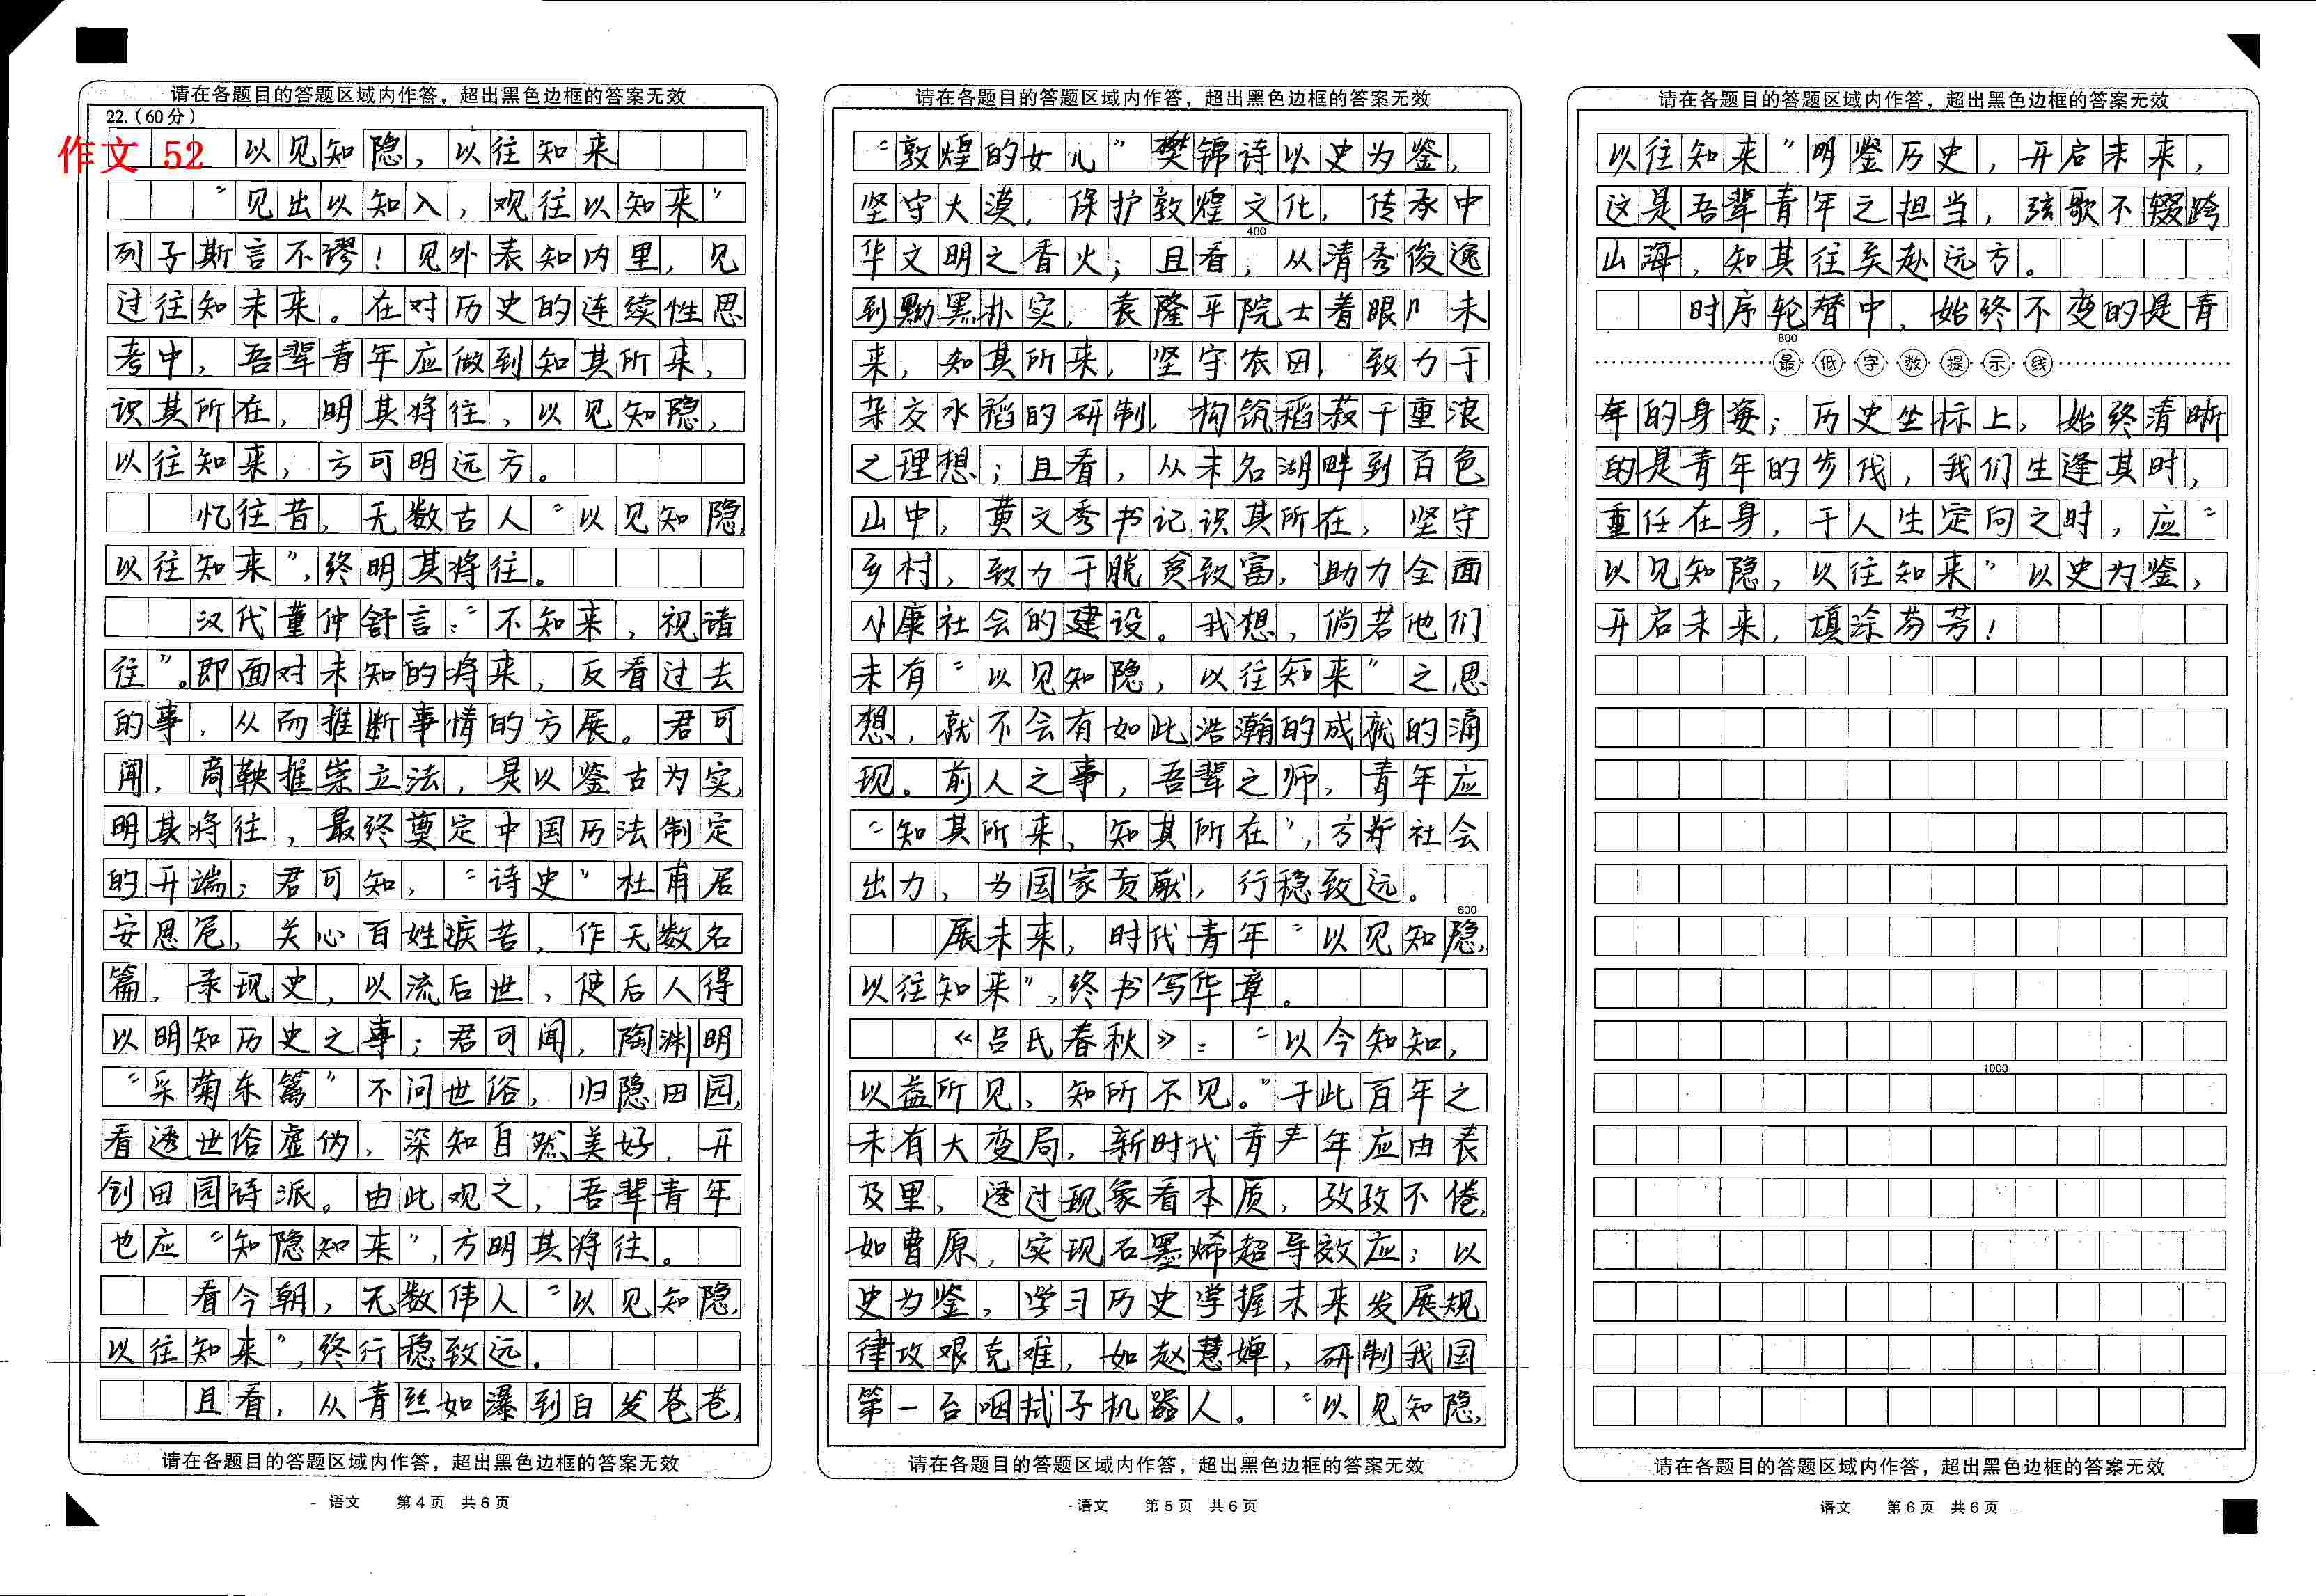 请在各题目的答题区域内作答，超出黑色边框的答案无效
22.（60分）
作文 52
以见知隐，以往知来
“见出以知入，观往以知来”
列子斯言不谬！见外表知内里，见
过往知未来。在对历史的连续性思
考中，吾辈青年应做到知其所来，
识其所在，明其将往，以见知隐，
以往知来，方可明远方。
忆往昔，无数古人“以见知隐，
以往知来”，终明其将往。
汉代董仲舒言：“不知来，视诸
往”。即面对未知的将来，反看过去
的事，从而推断事情的方展。君可
闻，商鞅推崇立法，是以鉴古为实，
明其将往，最终奠定中国历法制定
的开端；君可知，“诗史”杜甫居
安思危，关心百姓疾苦，作无数名
篇，录现史，以流后世，使后人得
以明知历史之事；君可闻，陶渊明
“采菊东篱”不问世俗，归隐田园，
看透世俗虚伪，深知自然美好，开
创田园诗派。由此观之，吾辈青年
也应“知隐知来”，方明其将往。
看今朝，无数伟人“以见知隐，
以往知来”，终行稳致远。
且看，从青丝如瀑到白发苍苍，
请在各题目的答题区域内作答，超出黑色边框的答案无效
语文 第4页 共6页
请在各题目的答题区域内作答，超出黑色边框的答案无效
“敦煌的女儿”樊锦诗以史为鉴，
坚守大漠，保护敦煌文化，传承中
400
华文明之香火；且看，从清秀俊逸
到黝黑朴实，袁隆平院士着眼于未
来，知其所来，坚守农田，致力于
杂交水稻的研制，构筑稻菽千重浪
之理想；且看，从未名湖畔到百色
山中，黄文秀书记识其所在，坚守
乡村，致力于脱贫致富，助力全面
小康社会的建设。我想，倘若他们
未有“以见知隐，以往知来”之思
想，就不会有如此浩瀚的成就的涌
现。前人之事，吾辈之师，青年应
“知其所来，知其所在”，方能社会
出力，为国家贡献，行稳致远。
600
展未来，时代青年“以见知隐，
以往知来”，终书写华章。
《吕氏春秋》：“以今知知，
以益所见，知所不见。”于此百年之
未有大变局，新时代青年应由表
及里，透过现象看本质，孜孜不倦，
如曹原，实现石墨烯超导效应；以
史为鉴，学习历史掌握未来发展规
律攻艰克难，如赵慧婵，研制我国
第一台咽拭子机器人。“以见知隐，
请在各题目的答题区域内作答，超出黑色边框的答案无效
语文 第5页 共6页
请在各题目的答题区域内作答，超出黑色边框的答案无效
以往知来”明鉴历史，开启未来，
这是吾辈青年之担当，弦歌不辍跨
山海，知其往矣赴远方。
时序轮替中，始终不变的是青
800
最低字数提示线
年的身姿；历史坐标上，始终清晰
的是青年的步伐，我们生逢其时，
重任在身，于人生定向之时，应“
以见知隐，以往知来”以史为鉴，
开启未来，填涂芬芳！
1000
请在各题目的答题区域内作答，超出黑色边框的答案无效
语文 第6页 共6页